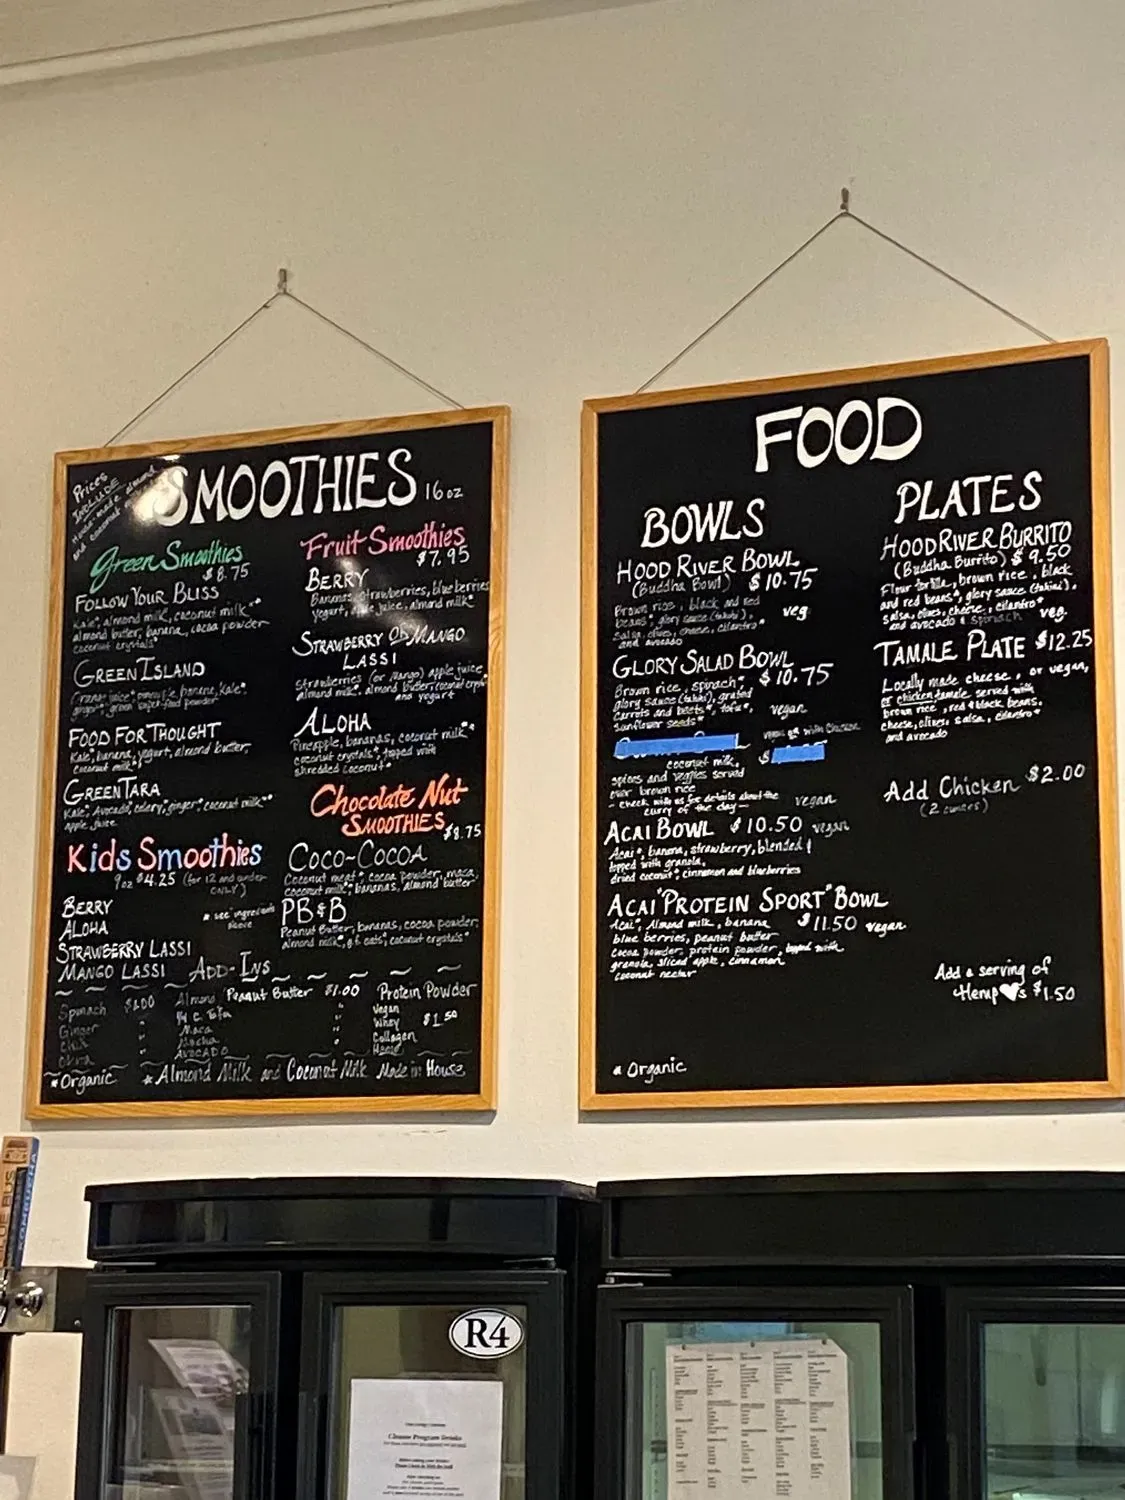 Prices
INCLUDE
House-made almond
and coconut
SMOOTHIES 16 oz
Green Smoothies
$8.75
FOLLOW YOUR BLISS
Kale*, almond milk, coconut milk**
almond butter, banana, cacao powder
coconut crystals*
GREEN ISLAND
juice*, pineapple, banana, Kale*,
ginger*, green super-food powder
FOOD FOR THOUGHT
Kale*, banana, yogurt, almond butter,
coconut milk*
GREEN TARA
Kale*, Avocado, celery, ginger*, coconut milk**
apple juice
Kids Smoothies
9oz $4.25 (for 12 and under
ONLY)
BERRY
ALOHA
STRAWBERRY LASSI
MANGO LASSI
* see ingredients
above
Fruit Smoothies
$7.95
BERRY
Bananas, strawberries, blueberries
yogurt, apple juice, almond milk*
STRAWBERRY OR MANGO
LASSI
Strawberries (or Mango) apple juice
almond milk*, almond butter, coconut crystals*
and yogurt
ALOHA
Pineapple, bananas, coconut milk**
coconut crystals*, topped with
shredded coconut*
Chocolate Nut
SMOOTHIES
$8.75
COCO-COCOA
Coconut meat*, cocoa powder, maca,
coconut milk*, bananas, almond butter
PB&B
Peanut Butter, bananas, cocoa powder,
almond milk*, g.f. oats, coconut crystals*
ADD-INS
Spinach $1.00
Ginger "
Chia "
Almond, Peanut Butter $1.00
Maca "
Mocha "
AVOCADO "
Protein Powder
Vegan
Whey $1.50
Collagen
Hemp
*Organic * Almond Milk and Coconut Milk Made in House
FOOD
BOWLS
HOOD RIVER BOWL
(Buddha Bowl) $10.75
Brown rice, black and red veg
beans*, glory sauce (tahini),
salsa, olives, cheese, cilantro*
and avocado
GLORY SALAD BOWL
$10.75
Brown rice, spinach*,
glory sauce (tahini), grated
carrots and beets*, tofu*, vegan
Sunflower seeds*
$
coconut milk,
spices and veggies served
over brown rice
- check with us for details about the
curry of the day - vegan
ACAI BOWL $10.50 vegan
Acai*, banana, strawberry, blended &
topped with granola,
dried coconut*, cinnamon and blueberries
ACAI "PROTEIN SPORT" BOWL
$11.50 vegan
Acai*, Almond milk, banana
blue berries, peanut butter
cocoa powder, protein powder, topped with
granola, sliced apple, cinnamon
coconut nectar
* Organic
PLATES
HOOD RIVER BURRITO
(Buddha Burrito) $9.50
Flour tortilla, brown rice, black
and red beans*, glory sauce (tahini),
salsa, olives, cheese, cilantro* veg
and avocado & spinach
TAMALE PLATE $12.25
Locally made cheese, or vegan,
or chicken tamale served with
brown rice, red & black beans,
cheese, olives, salsa, cilantro*
and avocado
Add Chicken $2.00
(2 ounces)
Add a serving of
Hemp ♥s $1.50
BLUE BUS
KOMBUCHA
R4
Cleanse Program Drinks